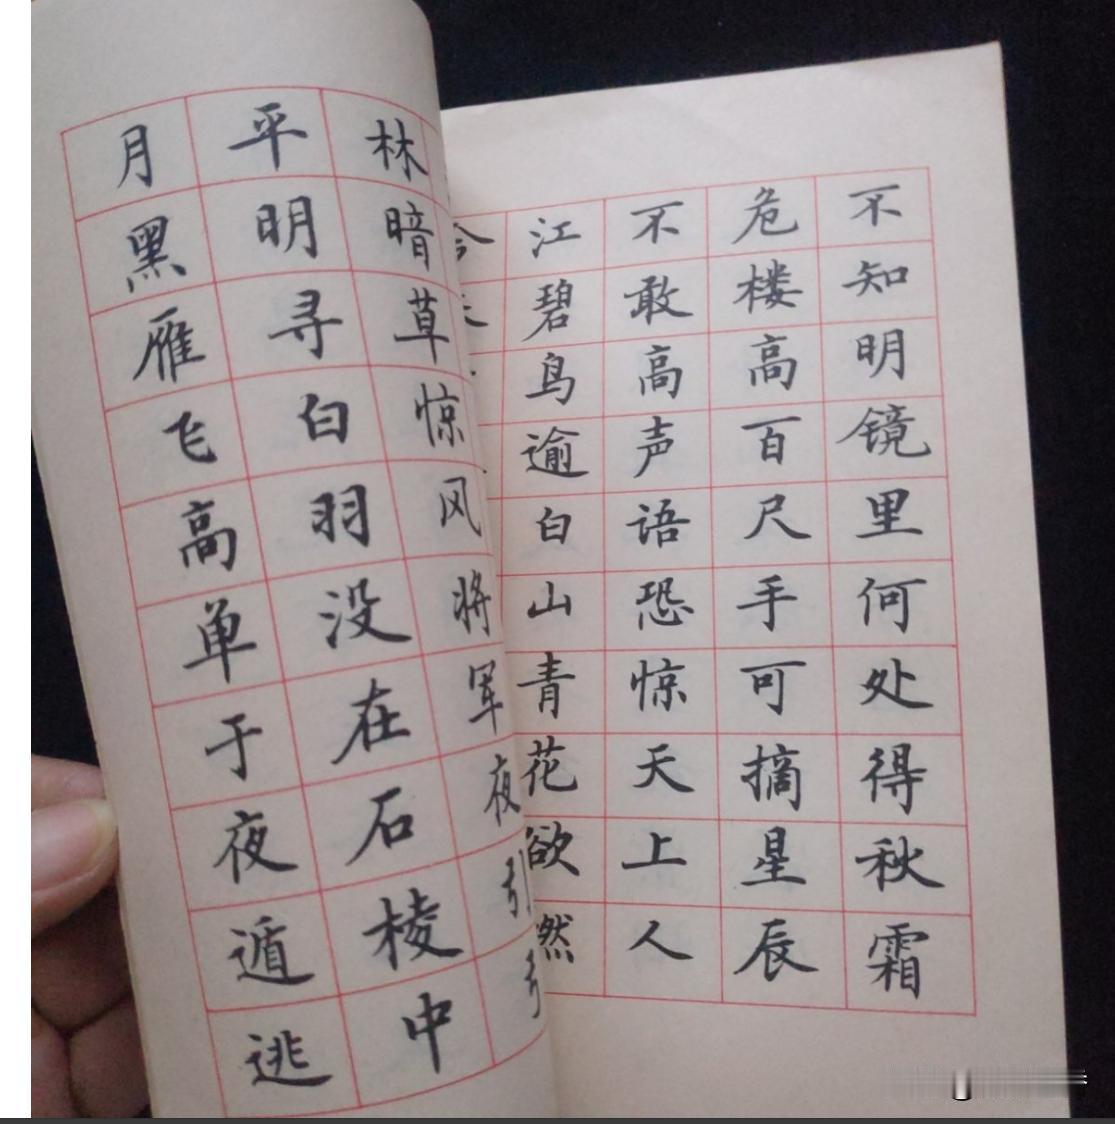 不知明镜里何处得秋霜
危楼高百尺手可摘星辰
不敢高声语恐惊天上人
江碧鸟逾白山青花欲燃
今
林暗草惊风将军夜引
平明寻白羽没在石棱中
月黑雁飞高单于夜遁逃